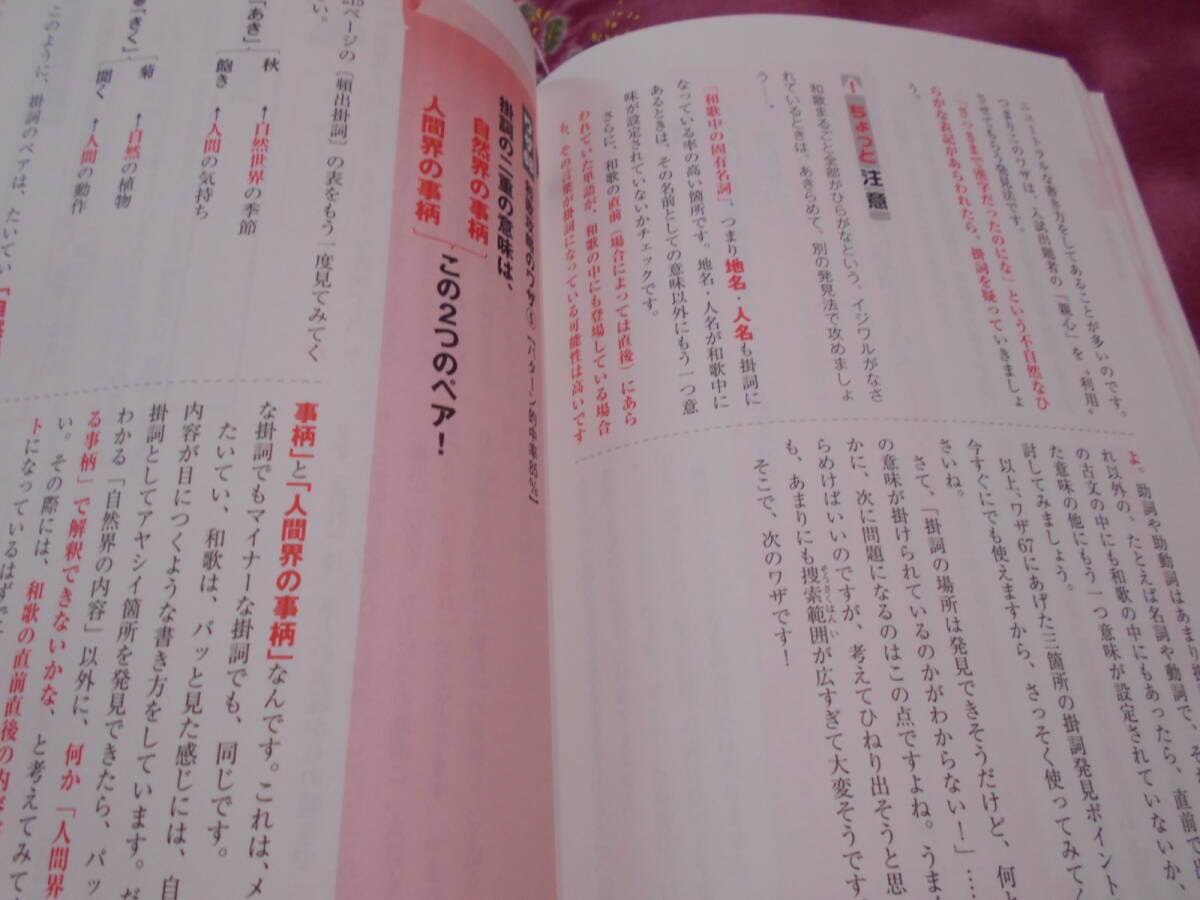 ニュートラルな書き方をしてあることが多いのです。
つまりこのワザは、入試出題者の「親心」を〝利用〟
させてもらう発見法です。
「さっきまで漢字だったのにな」という不自然なひ
らがな表記があらわれたら、掛詞を疑っていきましょ
う。
ちょっと注意
和歌まるごと全部がひらがなという、イジワルがなさ
れているときは、あきらめて、別の発見法で攻めましょ
う――。
「和歌中の固有名詞」、つまり地名・人名も掛詞に
なっている率の高い箇所です。地名・人名が和歌中に
あるときは、その名前としての意味以外にもう一つ意
味が設定されていないかチェックです。
さらに、和歌の直前（場合によっては直後）にあら
われていた単語が、和歌の中にも登場している場合
も、その言葉が掛詞になっている可能性は高いです
よ。助詞や助動詞はあまり
れ以外の、たとえば名詞や動詞で、
の古文の中にも和歌の中にもあったら、直前で
た意味の他にもう一つ意味が設定されていないか、
討してみましょう。
以上、ワザ67にあげた三箇所の掛詞発見ポイント
今すぐにでも使えますから、さっそく使ってみてく
さいね。
さて、「掛詞の場所は発見できそうだけど、何と
の意味が掛けられているのかがわからない！」…
かに、次に問題になるのはこの点ですよね。うま
らめけばいいのですが、考えてひねり出そうと思
も、あまりにも捜索範囲が広すぎて大変そうです
そこで、次のワザです！
［パターン的中率85％］
掛詞の二重の意味は、
自然界の事柄
人間界の事柄
この2つのペア！
ページの［頻出掛詞］の表をもう一度見てみてく
い。
「あき」
秋 ←自然世界の季節
飽き ←人間の気持ち
「きく」
菊 ←自然の植物
聞く ←人間の動作
このように、掛詞のペアは、たいてい「自然
事柄」と「人間界の事柄」なんです。これは、メ
な掛詞でもマイナーな掛詞でも、同じです。
たいてい、和歌は、パッと見た感じには、自
内容が目につくような書き方をしています。だ
掛詞としてアヤシイ箇所を発見できたら、パッ
わかる「自然界の内容」以外に、何か「人間界
る事柄」で解釈できないかな、と考えてみて
い。その際には、和歌の直前直後の内
トになっているはずで